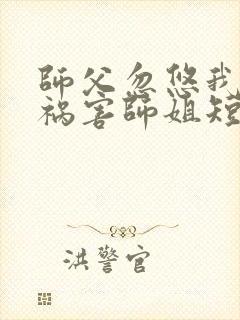 師父忽悠我
祸害師姐短
洪警官